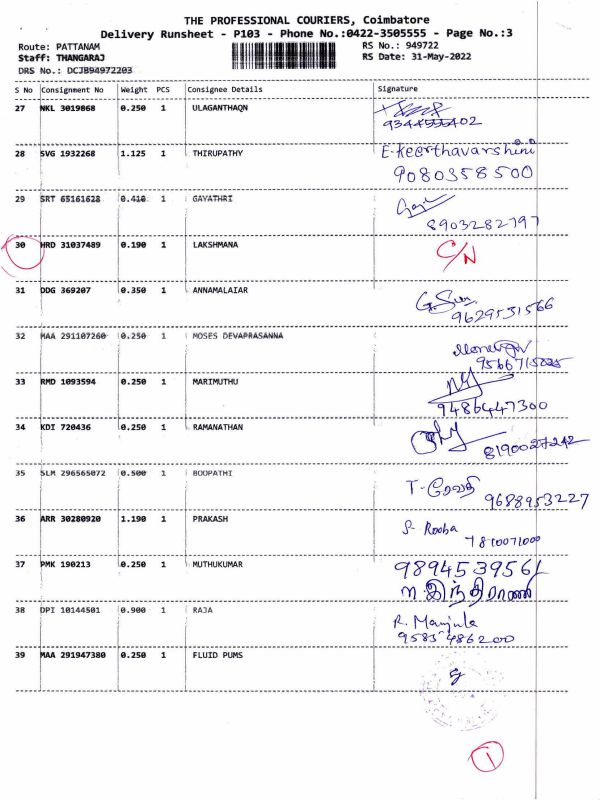 THE PROFESSIONAL COURIERS, Coimbatore
Delivery Runsheet - P103 - Phone No.:0422-3505555 - Page No.:3
Route: PATTANAM RS No.: 949722
Staff: THANGARAJ RS Date: 31-May-2022
DRS No.: DCJB94972203
S No Consignment No Weight PCS Consignee Details Signature
27 NKL 3019868 0.250 1 ULAGANTHAQN
28 SVG 1932268 1.125 1 THIRUPATHY E.keerthavarshini
9080358500
29 SRT 65161628 0.410 1 GAYATHRI
8903282797
30 HRD 31037489 0.190 1 LAKSHMANA C/N
31 DDG 369207 0.350 1 ANNAMALAIAR
9629531566
32 MAA 291107260 0.250 1 MOSES DEVAPRASANNA
33 RMD 1093594 0.250 1 MARIMUTHU
9486447300
34 KDI 720436 0.250 1 RAMANATHAN
8190027242
35 SLM 296565072 0.500 1 BOOPATHI T-ரேவதி
9688953227
36 ARR 30280920 1.190 1 PRAKASH S. Rooba
7810071000
37 PMK 190213 0.250 1 MUTHUKUMAR 9894539561
ஈ.இந்திராணி
38 DPI 10144501 0.900 1 RAJA R. Manjula
9585486200
39 MAA 291947380 0.250 1 FLUID PUMS
1